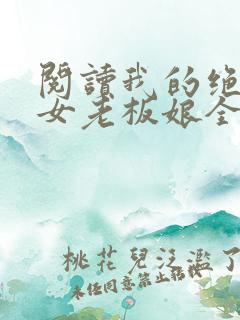 閱讀我的绝
女老板娘全
桃花兒泛濫了
未经同意禁止转载